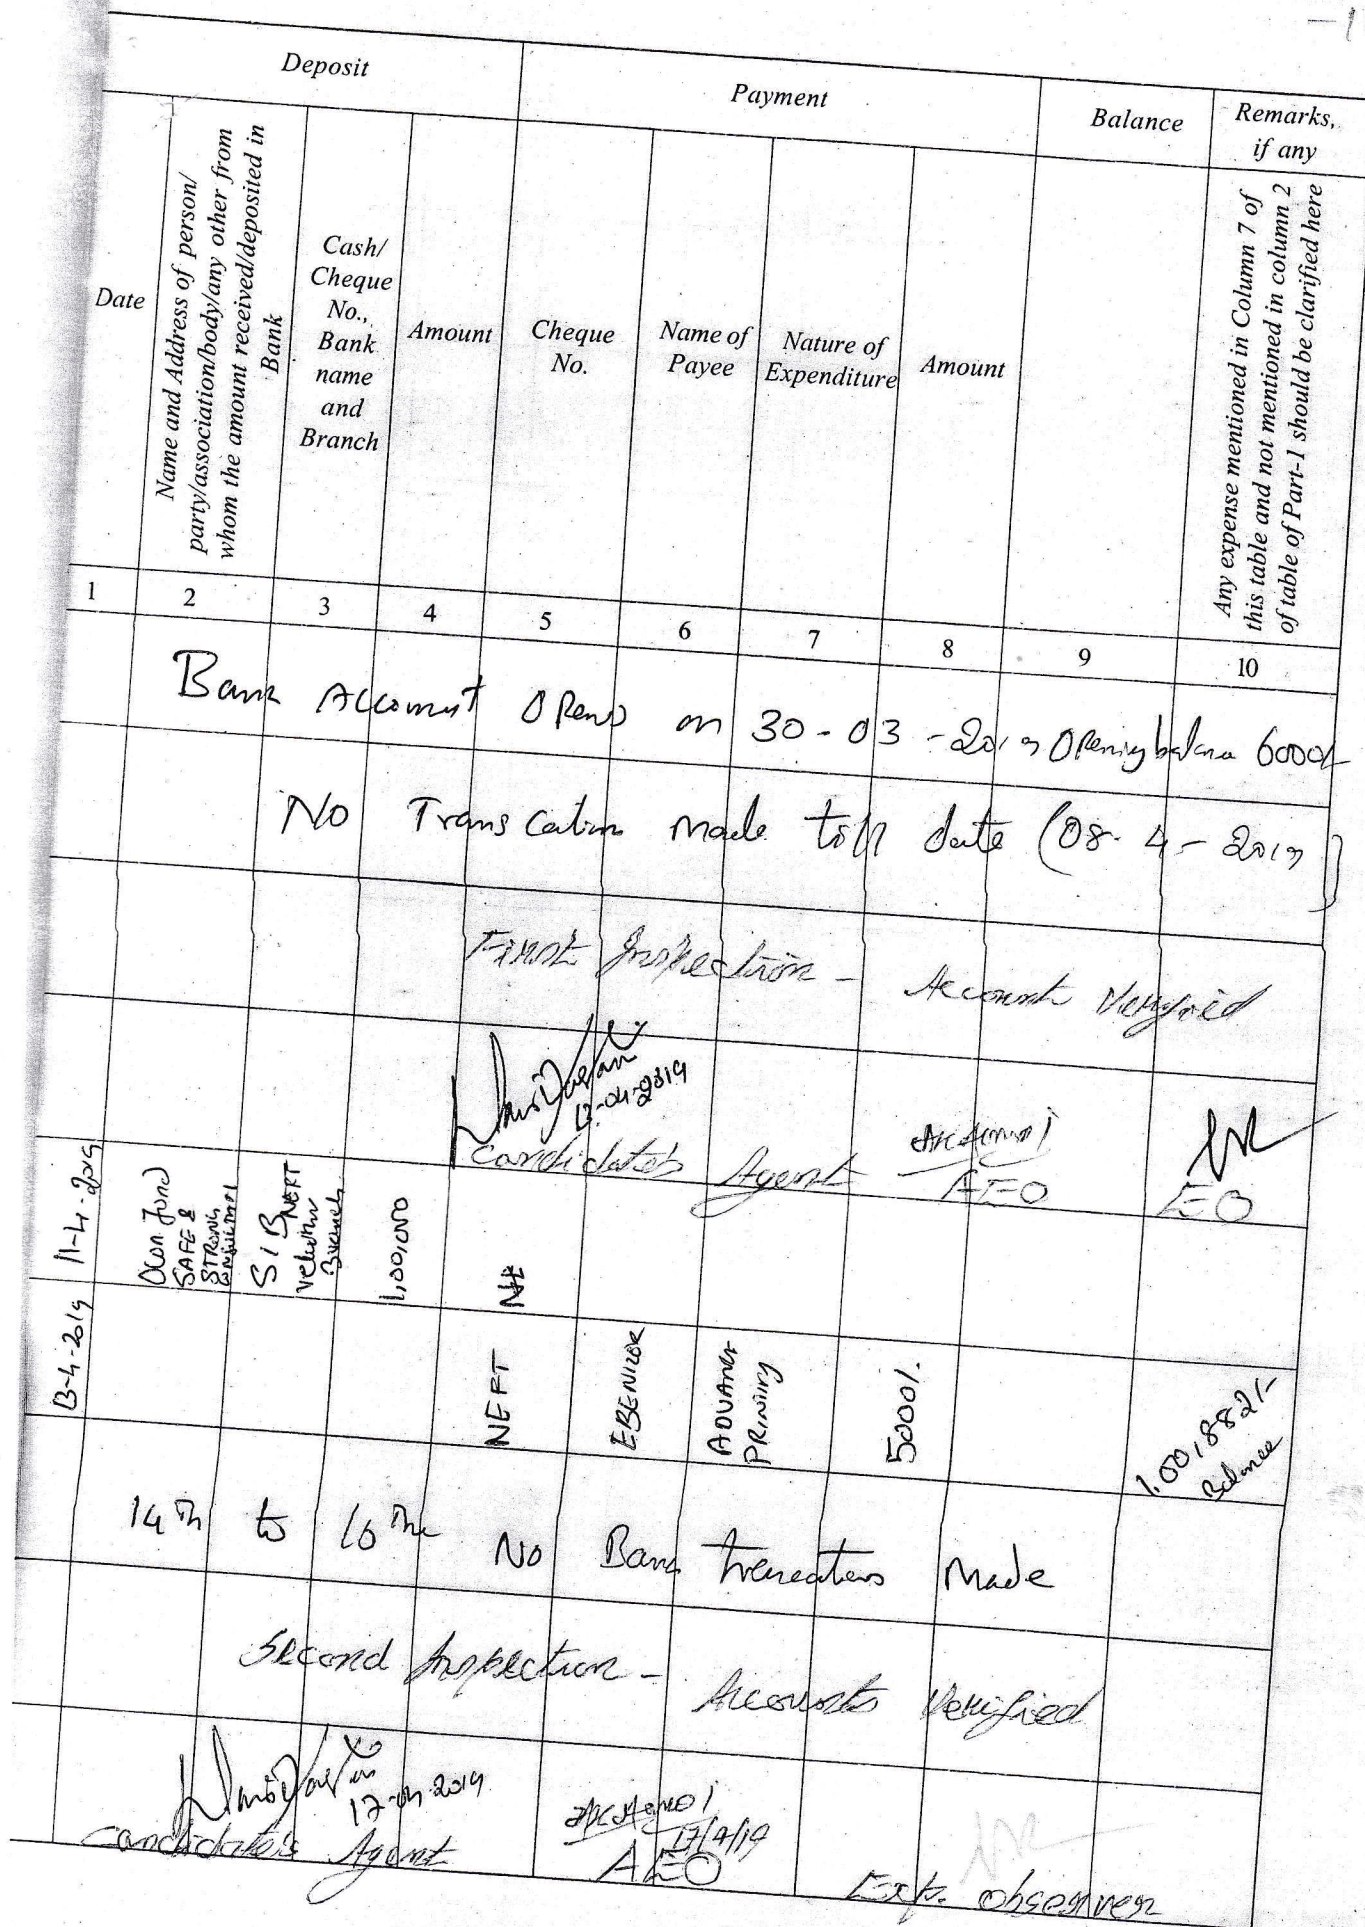 Deposit
Payment
Balance
Remarks, if any
Date
Name and Address of person/
party/association/body/any other from
whom the amount received/deposited in
Bank
Cash/
Cheque
No.,
Bank
name
and
Branch
Amount
Cheque
No.
Name of
Payee
Nature of
Expenditure
Amount
Any expense mentioned in Column 7 of
this table and not mentioned in column 2
of table of Part-1 should be clarified here
1 2 3 4 5 6 7 8 9 10
Bank Account Opend on 30-03-2019 Opening balance 6000/-
No Transcation made till date (08-4-2019)
First Inspection - Account Verified
12-04-2019
Candidate's Agent AEO EO
11-4-2019
Own fund
SAFE &
STRONG
SIB NEFT
Branch
1,00,000
13-4-2019
NEFT
EBENIZOR
ADVANCE
PRINTING
5000/.
1,00,882/-
Balance
14th to 16th No Bank made
Second Inspection - Accounts Verified
17-04-2019
Candidate's Agent
17/4/19
AEO
Exp. observer